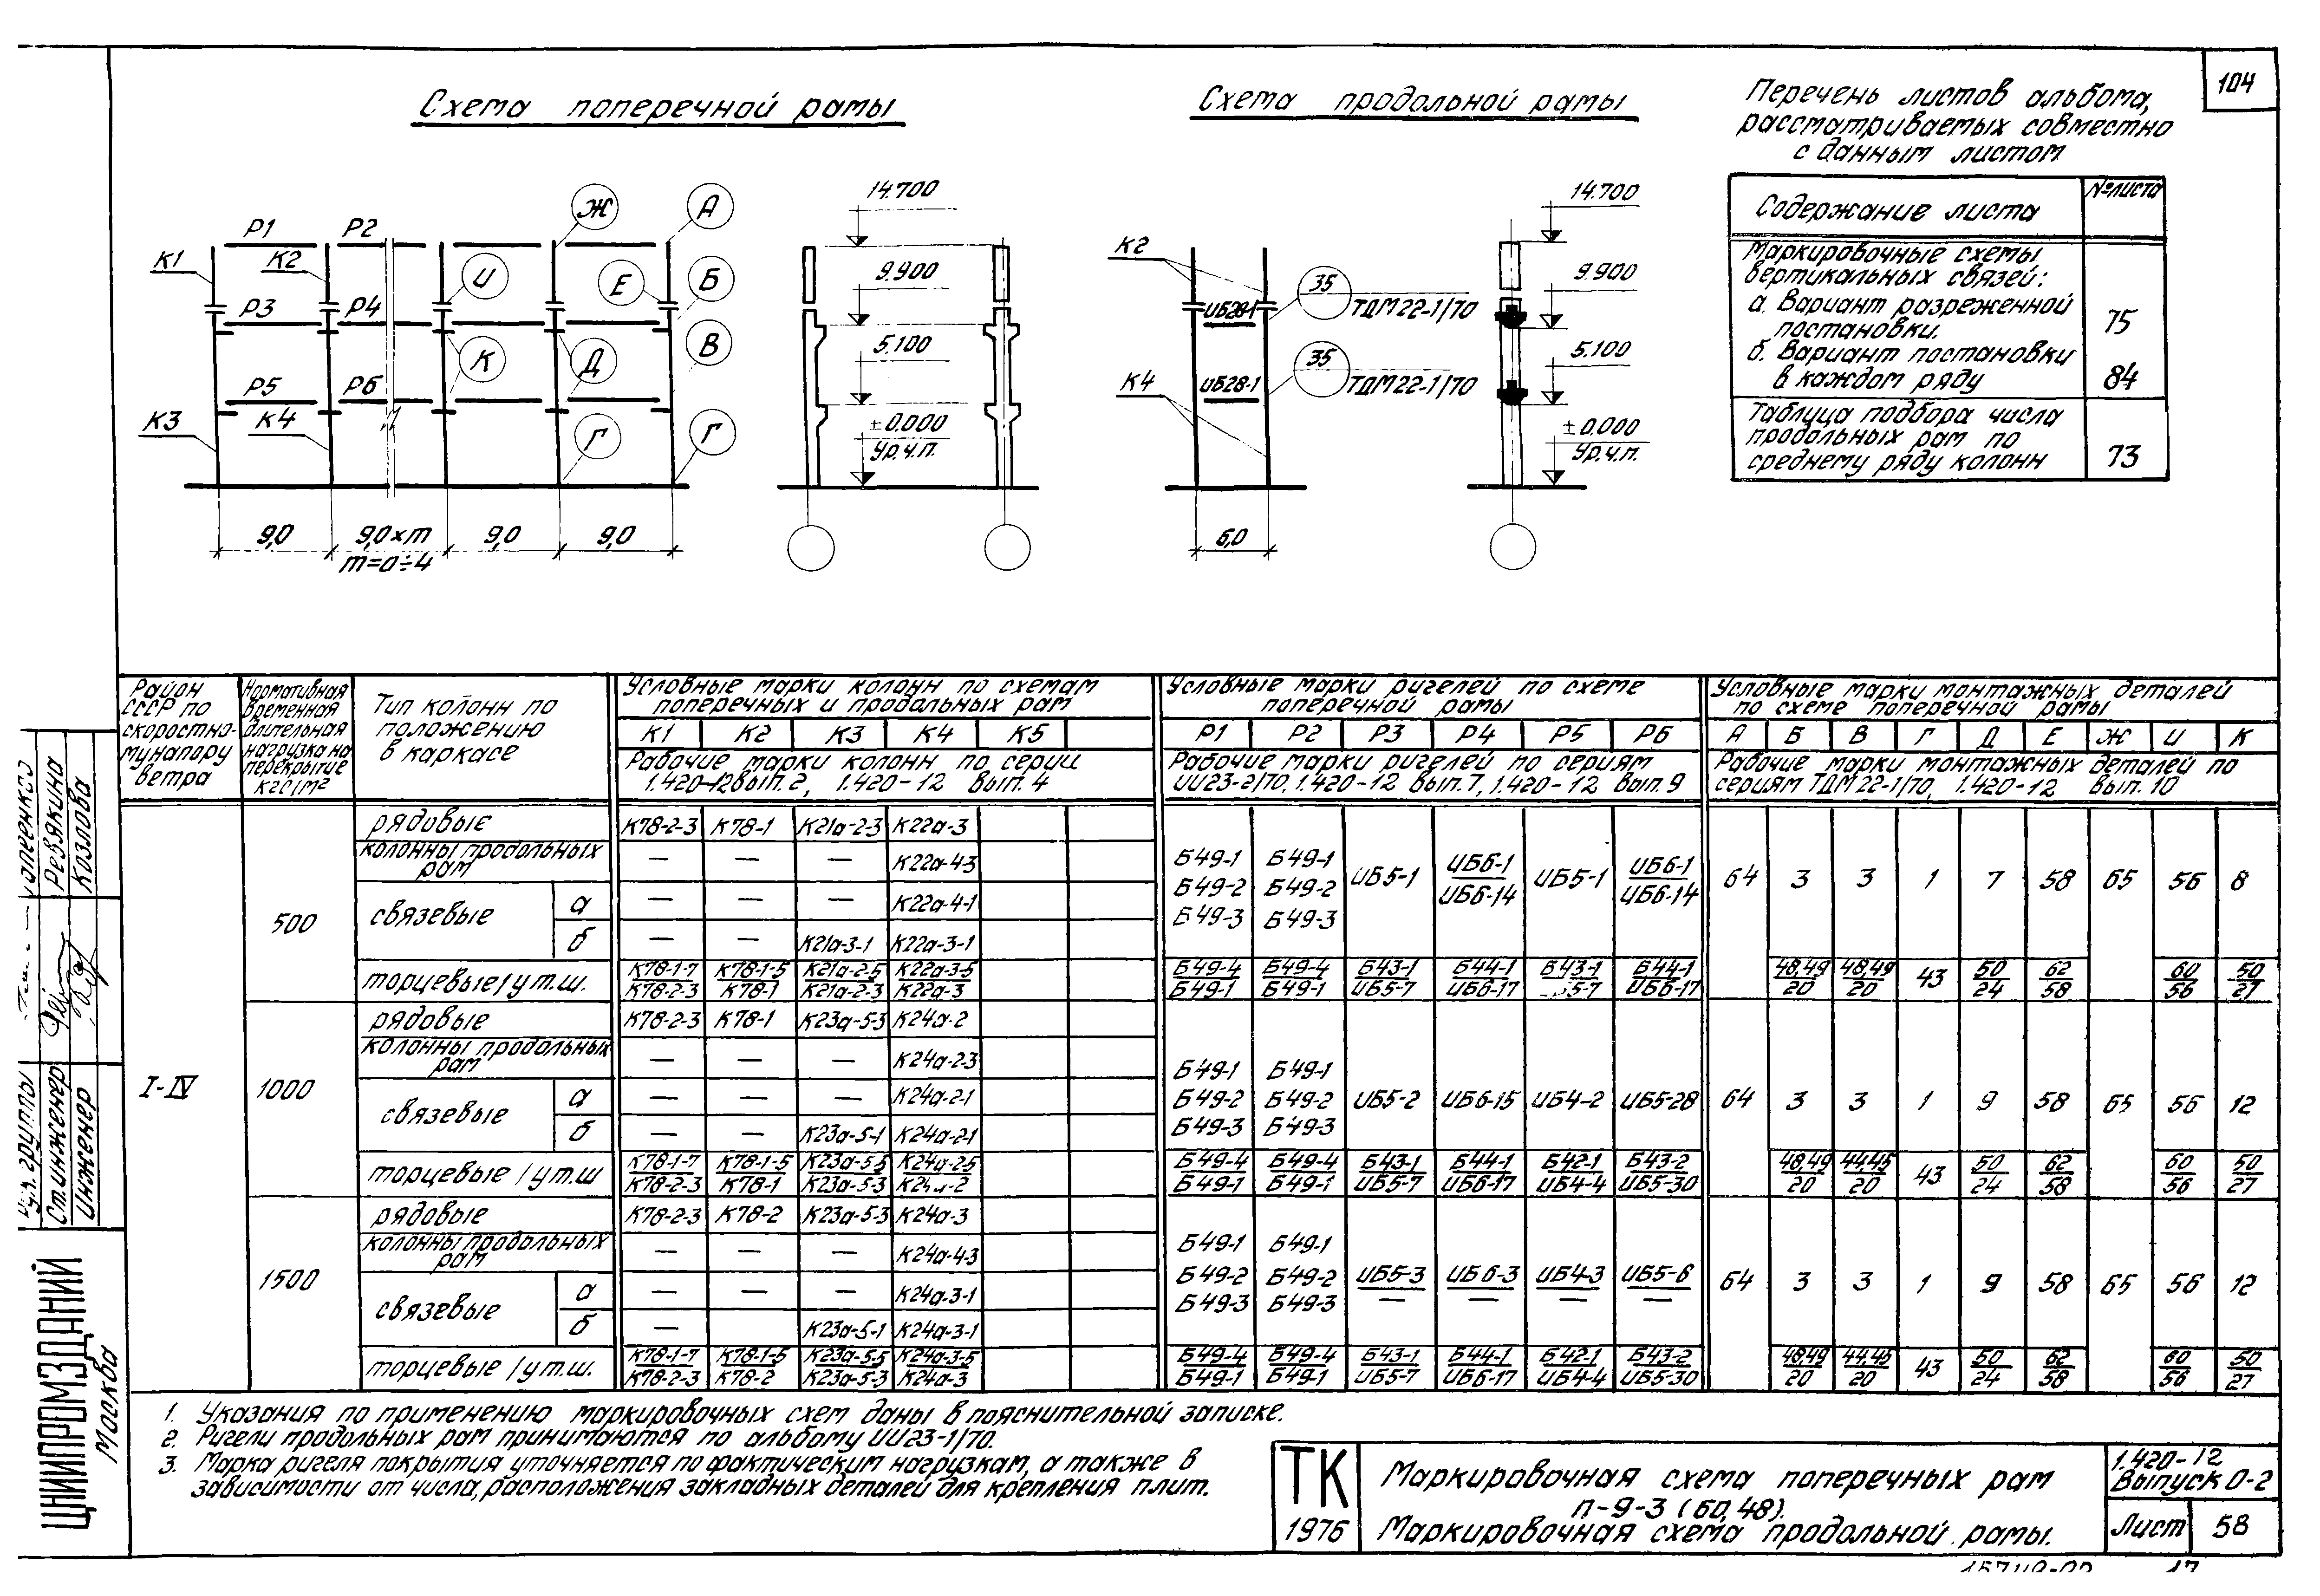 104
Схема поперечной рамы
Схема продольной рамы
Перечень листов альбома,
рассматриваемых совместно
с данным листом
Содержание листа
№ листа
Маркировочные схемы
вертикальных связей:
а. Вариант разреженной
постановки.
75
б. Вариант постановки
в каждом ряду
84
Таблица подбора числа
продольных рам по
среднему ряду колонн
73
Р1 Р2 Ж А
К1 К2 И Е Б
Р3 Р4 К Д В
Р5 Р6
К3 К4 Г Г
9,0 9,0×m 9,0 9,0
m=0÷4
14.700
9.900
5.100
±0.000
Ур.ч.п.
К2
ИБ28-1 35 ТДМ22-1/70
К4
ИБ28-1 35 ТДМ22-1/70
6,0
14.700
9.900
5.100
±0.000
Ур.ч.п.
Район
СССР по
скоростно-
му напору
ветра
Нормативная
временная
длительная
нагрузка на
перекрытие
кгс/м²
Тип колонн по
положению
в каркасе
Условные марки колонн по схемам
поперечных и продольных рам
К1 К2 К3 К4 К5
Рабочие марки колонн по серии
1.420-12 вып. 2, 1.420-12 вып. 4
Условные марки ригелей по схеме
поперечной рамы
Р1 Р2 Р3 Р4 Р5 Р6
Рабочие марки ригелей по сериям
ИИ23-2/70, 1.420-12 вып. 7, 1.420-12 вып. 9
Условные марки монтажных деталей
по схеме поперечной рамы
А Б В Г Д Е Ж И К
Рабочие марки монтажных деталей по
сериям ТДМ 22-1/70, 1.420-12 вып. 10
I-IV
500
рядовые К78-2-3 К78-1 К21а-2-3 К22а-3
колонны продольных
рам — — — К22а-4-3
связевые а — — — К22а-4-1
б — — К21а-3-1 К22а-3-1
Б49-1 Б49-1 ИБ5-1 ИБ6-1 ИБ5-1 ИБ6-1
Б49-2 Б49-2 ИБ6-14 ИБ6-14
Б49-3 Б49-3
64 3 3 1 7 58 65 56 8
торцевые/у т.ш. К78-1-7 К78-1-5 К21а-2-5 К22а-3-5 Б49-4 Б49-4 Б43-1 Б44-1 Б43-1 Б44-1 48,49 48,49 43 50 62 60 50
К78-2-3 К78-1 К21а-2-3 К22а-3 Б49-1 Б49-1 ИБ5-7 ИБ6-17 5-7 ИБ6-17 20 20 24 58 56 27
1000
рядовые К78-2-3 К78-1 К23а-5-3 К24а-2
колонны продольных
рам — — — К24а-2-3
связевые а — — — К24а-2-1
б — — К23а-5-1 К24а-2-1
Б49-1 Б49-1
Б49-2 Б49-2 ИБ5-2 ИБ6-15 ИБ4-2 ИБ5-28
Б49-3 Б49-3
64 3 3 1 9 58 65 56 12
торцевые/у т.ш К78-1-7 К78-1-5 К23а-5-5 К24а-2-5 Б49-4 Б49-4 Б43-1 Б44-1 Б42-1 Б43-2 48,49 44,45 43 50 62 60 50
К78-2-3 К78-1 К23а-5-3 К24а-2 Б49-1 Б49-1 ИБ5-7 ИБ6-17 ИБ4-4 ИБ5-30 20 20 24 58 56 27
1500
рядовые К78-2-3 К78-2 К23а-5-3 К24а-3
колонны продольных
рам — — — К24а-4-3
связевые а — — — К24а-3-1
б — К23а-5-1 К24а-3-1
Б49-1 Б49-1
Б49-2 Б49-2 ИБ5-3 ИБ6-3 ИБ4-3 ИБ5-6
Б49-3 Б49-3 — — — —
64 3 3 1 9 58 65 56 12
торцевые/у т.ш. К78-1-7 К78-1-5 К23а-5-5 К24а-3-5 Б49-4 Б49-4 Б43-1 Б44-1 Б42-1 Б43-2 48,49 44,45 43 50 62 60 50
К78-2-3 К78-2 К23а-5-3 К24а-3 Б49-1 Б49-1 ИБ5-7 ИБ6-17 ИБ4-4 ИБ5-30 20 20 24 58 56 27
1. Указания по применению маркировочных схем даны в пояснительной записке.
2. Ригели продольных рам принимаются по альбому ИИ23-1/70.
3. Марка ригеля покрытия уточняется по фактическим нагрузкам, а также в
зависимости от числа, расположения закладных деталей для крепления плит.
ТК
1976
Маркировочная схема поперечных рам
п-9-3 (60,48).
Маркировочная схема продольной рамы.
1.420-12
Выпуск 0-2
Лист 58
Ревякина
Козлова
группы
Ст. инженер
Инженер
ЦНИИПРОМЗДАНИЙ
Москва